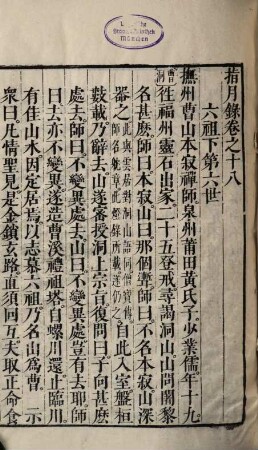 指月錄卷之十八
六祖下第六世
撫州曹山本寂禪師泉州莆田黃氏子少業儒年十九
曹洞
往福州靈石出家二十五登戒尋謁洞山山問闍黎
名甚麽師曰本寂山曰那個聻師曰不名本寂山深
器之
自此入室盤桓
數載乃辭去山遂密授洞上宗旨復問曰子向甚麽
處去師曰不變異處去山曰不變異處豈有去耶師
曰去亦不變異遂造曹溪禮祖塔自螺川還止臨川
有佳山水因定居焉以志慕六祖乃名山為曹 示
衆曰凡情聖見是金鎖玄路直須回互夫取正命食